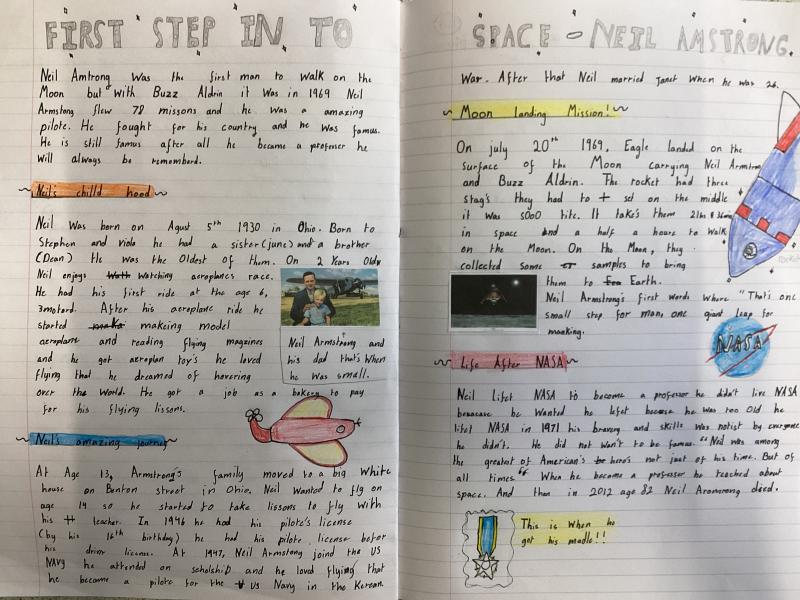 FIRST STEP IN TO
Neil Amtrong was the first man to walk on the
Moon but with Buzz Aldrin it was in 1969 Neil
Armstong flew 78 missons and he was a amazing
pilote. He fought for his country and he was famus.
He is still famus after all he became a professor he
will always be rememberd.
Neil's chilld hood
Neil was born on Agust 5th 1930 in Ohio. Born to
Stephen and viola he had a sister (june) and a brother
(Dean) He was the Oldest of them. On 2 Years Old
Neil enjoys watching aeroplanes race.
He had his first ride at the age 6,
3motard. After his aeroplane ride he
started makeing model
aeroplans and reading flying magizenes
and he got aeroplan toy's he loved
flying that he dreamed of hovering
over the world. He got a job as a bakery to pay
for his flying lissons.
Neil Armstrong and
his dad that's when
he was small.
Neil's amazing journey
At Age 13, Armstrong's family moved to a big white
house on Benton street in Ohio. Neil wanted to fly on
age 14 so he started to take lissons to fly with
his teacher. In 1946 he had his pilote's license
(by his 16th birthday) he had his pilote license befor
his driver license. At 1947, Neil Armstong joind the US
NAVY he attended on scholship and he loved flying that
he became a pilote for the US Navy in the Korean
SPACE - NEIL AMSTRONG.
War. After that Neil married Janet when he was 26.
Moon landing Mission!
On july 20th 1969, Eagle landed on the
surface of the Moon carrying Neil Armstron
and Buzz Aldrin. The rocket had three
stag's they had to set on the middle
it was 5000 tite. It take's them 21hs
in space and a half a houre to walk
on the Moon. On the Moon, they
collected some samples to bring
them to Earth.
Neil Armstrong's first words where "That's one
small step for man, one giant leap for
manking.
rocket
NASA
Life After NASA
Neil Lifet NASA to become a professor he didn't live NASA
benacase he wanted he lifet because he was too old he
lifet NASA in 1971 his bravery and skills was notist by everyone
he didn't. He did not wan't to be famus. "Neil was among
the greatist of American's hero's not just of his time. But of
all times" When he became a professor he teached about
space. And then in 2012 age 82 Neil Aromstrong died.
This is when he
got his madle!!